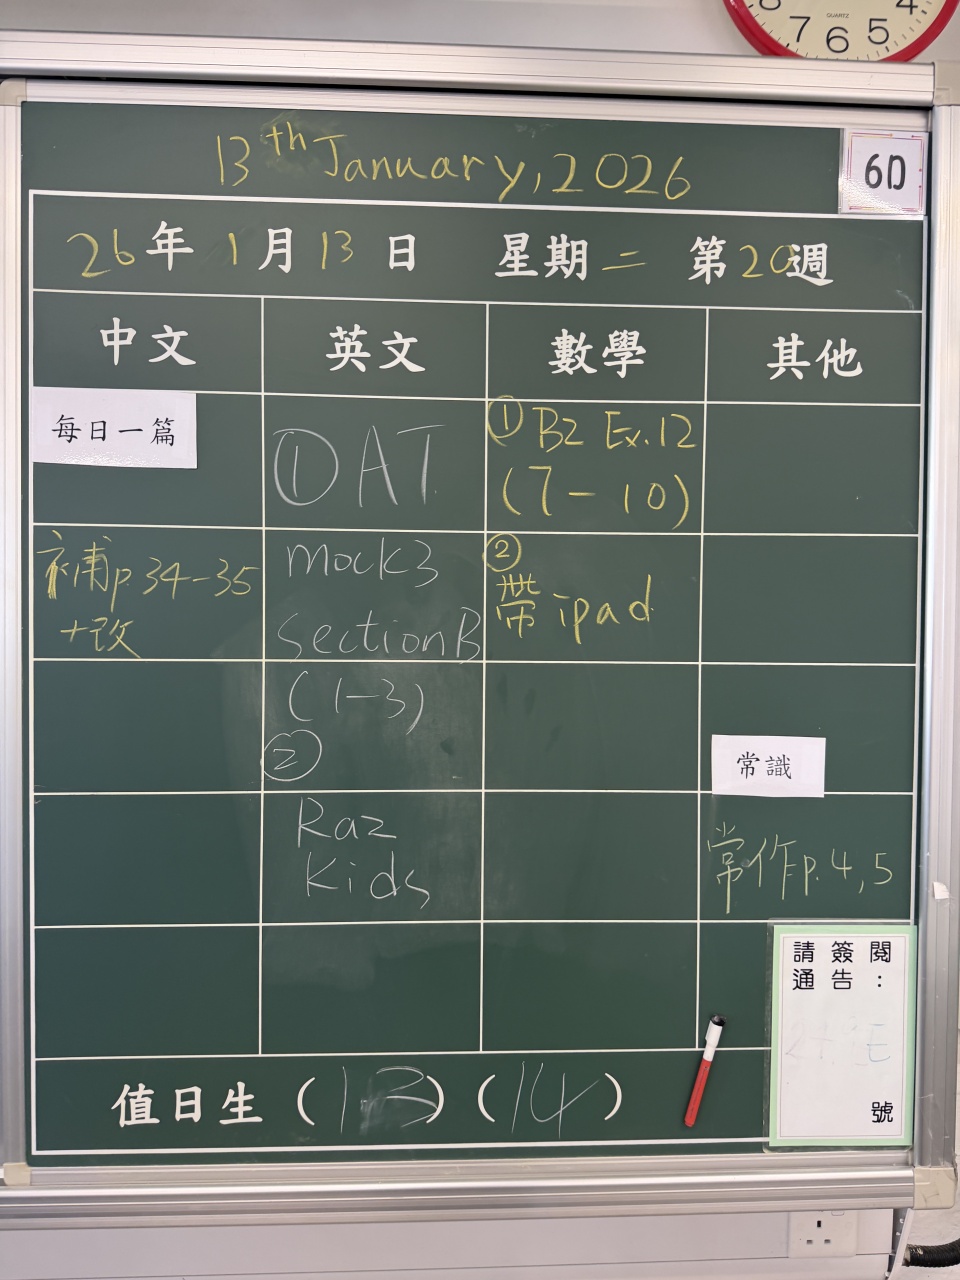 7 6 5 4
QUARTZ
13th January, 2026
6D
26年1月13日 星期二 第20週
中文 英文 數學 其他
每日一篇
補p.34-35
+改
① AT
mock3
section B
(1-3)
②
Raz
Kids
① B2 Ex.12
(7-10)
②
帶ipad
常識
常作p.4,5
請簽閱
通告：
號
值日生(13)(14)